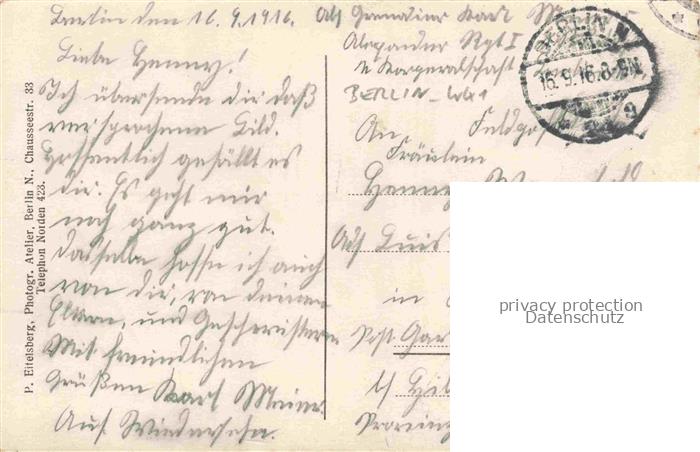 Berlin den 16.9.1916.
Liebe Henny!
Ich übersende dir daß
versprochene Bild.
Hoffentlich gefällt es
dir. Es geht mir
noch ganz gut.
Dasselbe hoffe ich auch
von dir, von deinen
Eltern, und Geschwistern
Mit freundlichen
Grüßen Karl Meine
Auf Wiedersehn.
P. Eitelsberg, Photogr. Atelier, Berlin N., Chausseestr. 33
Telephon Norden 423.
Abs Grenadier Karl
Alexander Rgt I
Korporalschaft
BERLIN
Feldpost
An
Fräulein
Henny
Adr. Luis
in
Post. Gar
Hil
Provinz
BERLIN N
16.9.16.8-9N
privacy protection
Datenschutz